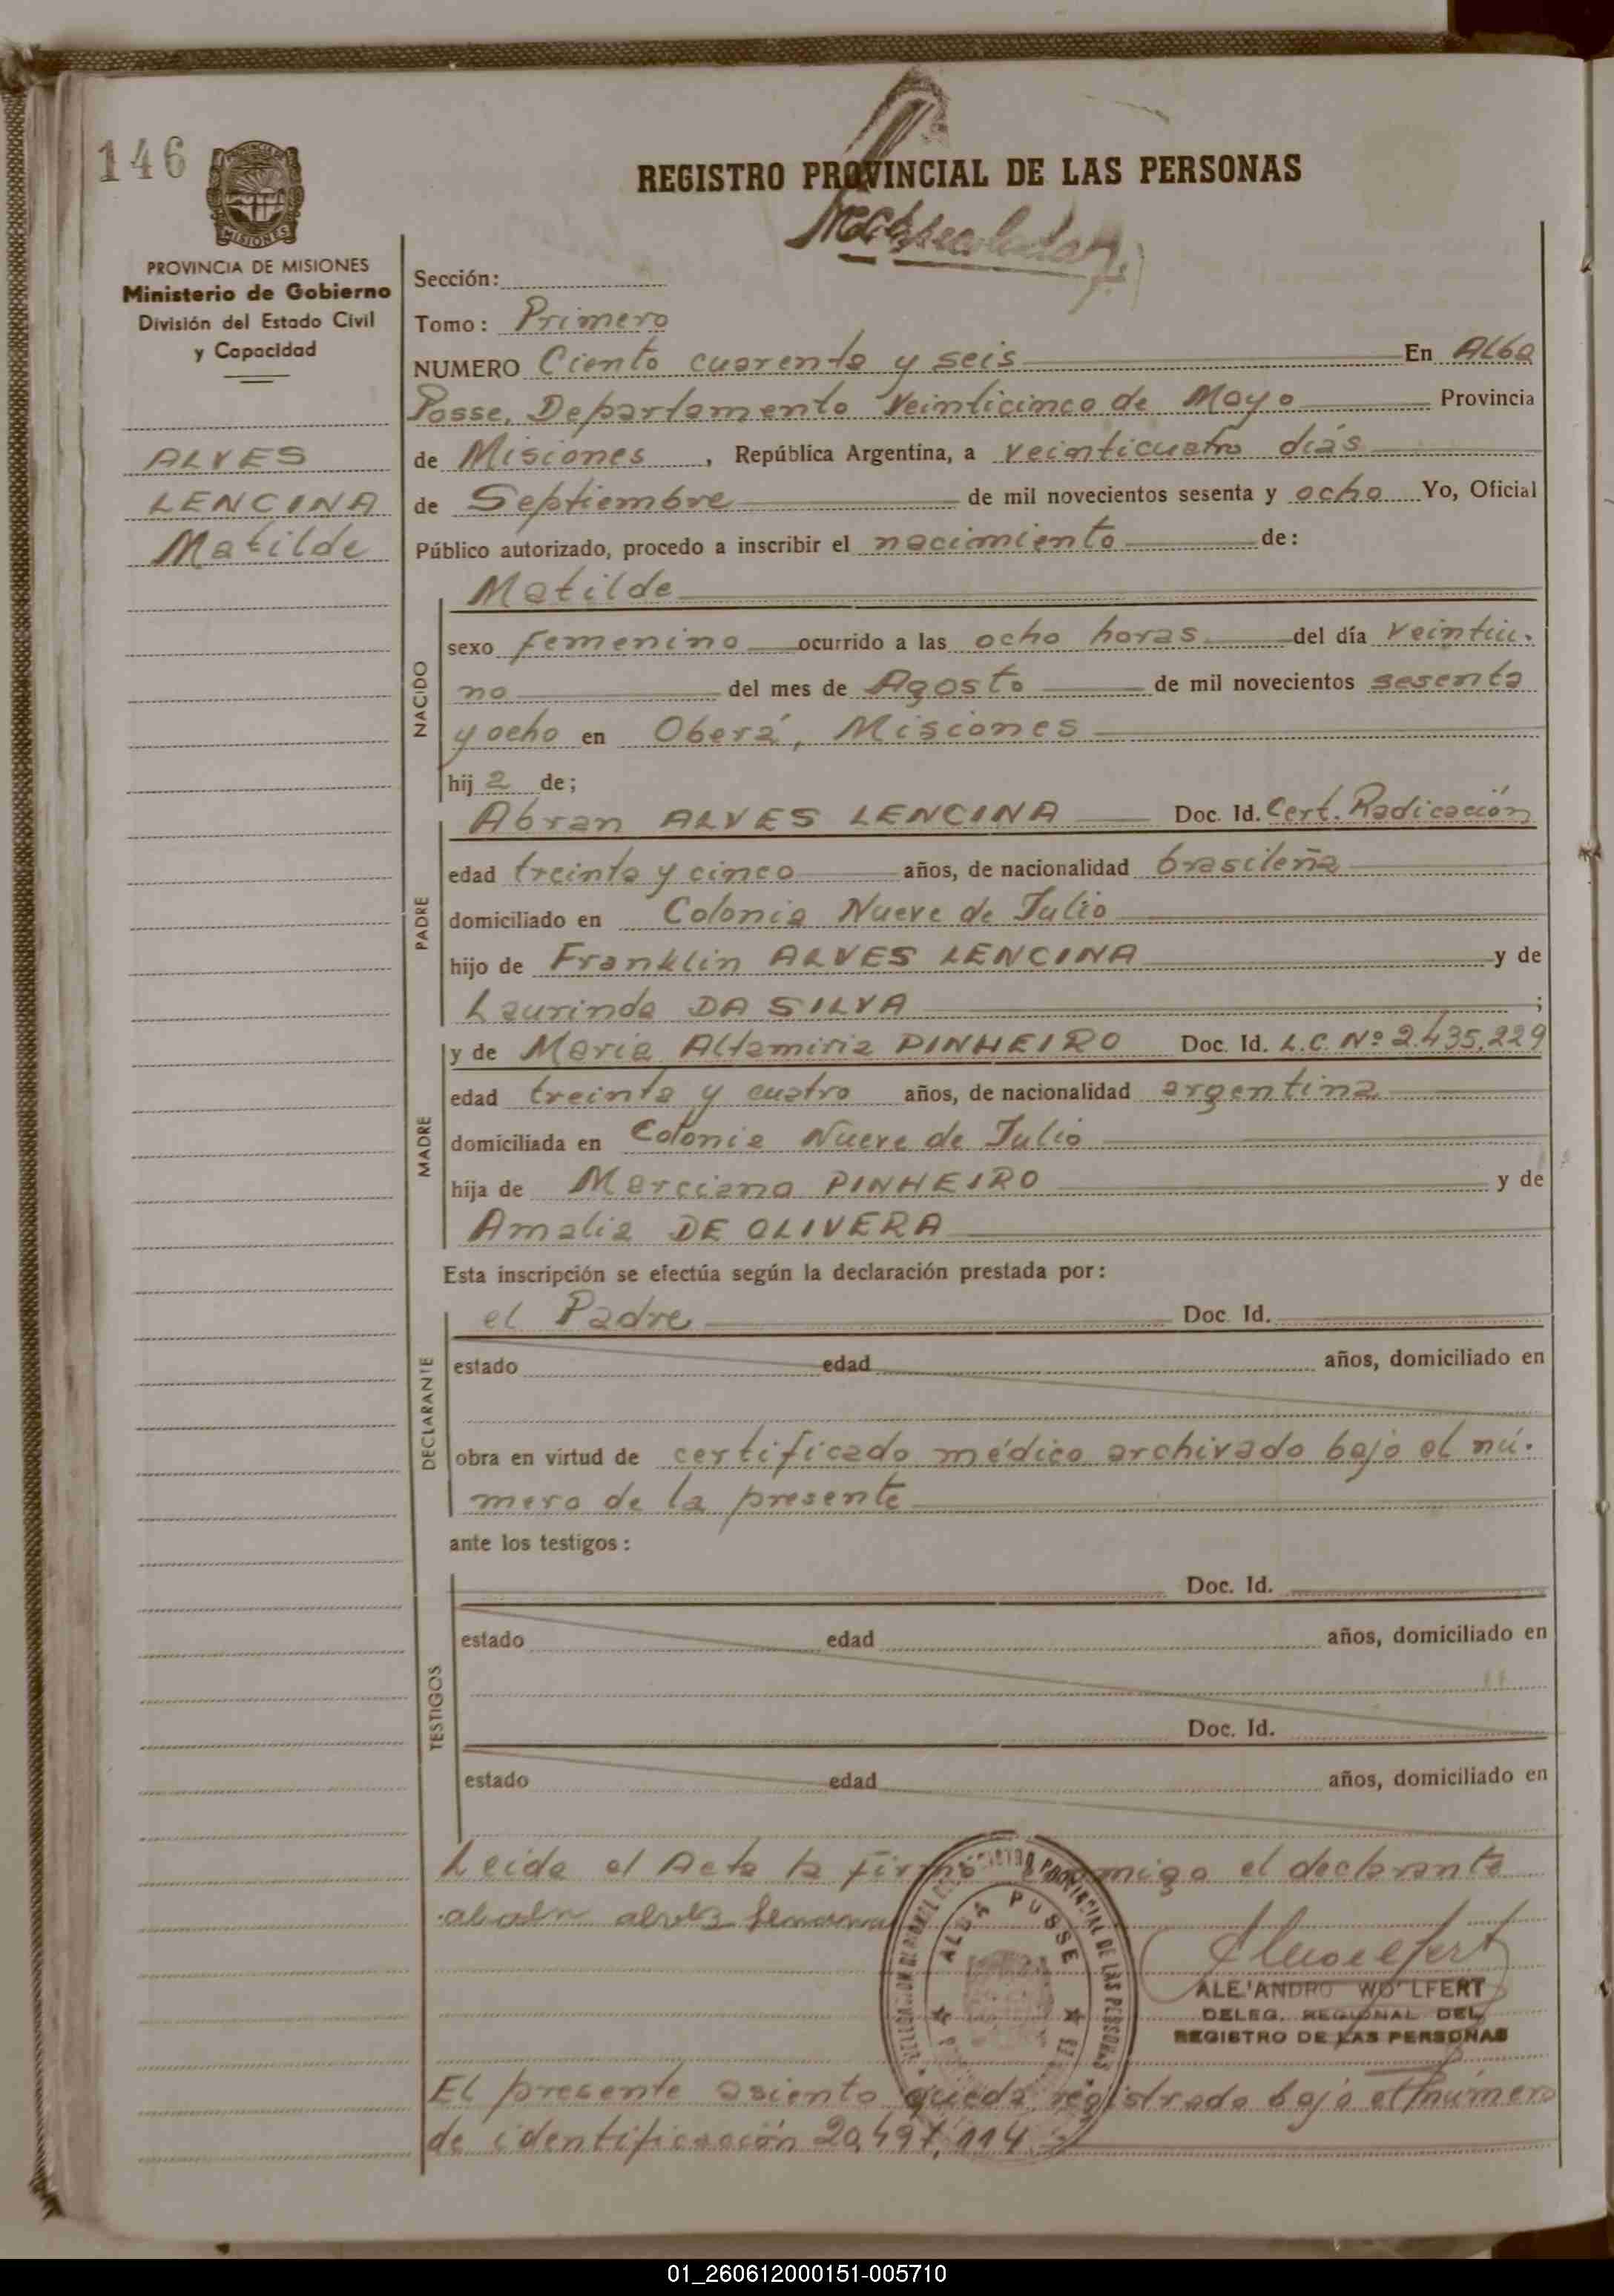 146
PROVINCIA DE MISIONES
REGISTRO PROVINCIAL DE LAS PERSONAS
PROVINCIA DE MISIONES
Ministerio de Gobierno
División del Estado Civil
y Capacidad
ALVES
LENCINA
Matilde
Sección:
Tomo: Primero
NUMERO Ciento cuarenta y seis En Alba
Posse, Departamento Veinticinco de Mayo Provincia
de Misiones, República Argentina, a veinticuatro días
de Septiembre de mil novecientos sesenta y ocho Yo, Oficial
Público autorizado, procedo a inscribir el nacimiento de:
Matilde
NACIDO
sexo femenino ocurrido a las ocho horas del día veintiu-
no del mes de Agosto de mil novecientos sesenta
y ocho en Oberá, Misiones
hij a de;
PADRE
Abran ALVES LENCINA Doc. Id. Cert. Radicación
edad treinta y cinco años, de nacionalidad brasileña
domiciliado en Colonia Nueve de Julio
hijo de Franklin ALVES LENCINA y de
Laurinda DA SILVA ;
MADRE
y de Maria Altamiria PINHEIRO Doc. Id. L.C. Nº 2.435.229
edad treinta y cuatro años, de nacionalidad argentina
domiciliada en Colonia Nueve de Julio
hija de Marciano PINHEIRO y de
Amalia DE OLIVERA
Esta inscripción se efectúa según la declaración prestada por:
DECLARANTE
el Padre Doc. Id.
estado edad años, domiciliado en
obra en virtud de certificado médico archivado bajo el nú-
mero de la presente
ante los testigos:
TESTIGOS
Doc. Id.
estado edad años, domiciliado en
Doc. Id.
estado edad años, domiciliado en
Leida el Acta la firma conmigo el declarante
REGISTRO PROVINCIAL DE LAS PERSONAS
ALBA POSSE
ALEJANDRO WOLFERT
DELEG. REGIONAL DEL
REGISTRO DE LAS PERSONAS
El presente asiento queda registrado bajo el número
de identificación 20,497,114
01_260612000151-005710